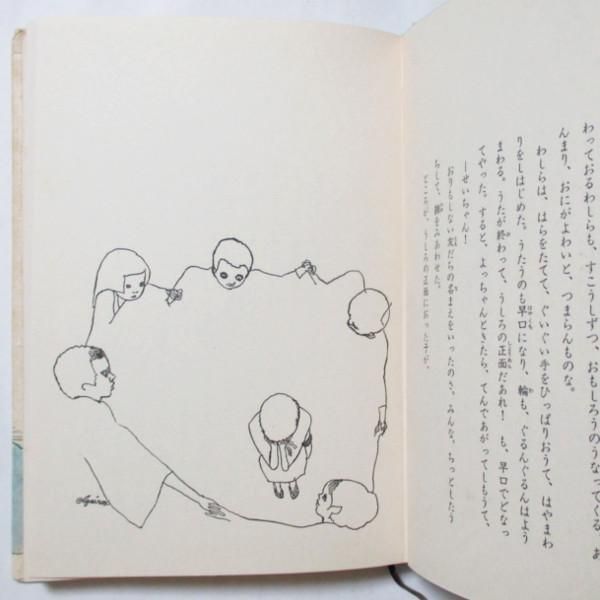 わっておるわしらも、すこうしずつ、おもしろうのうなってくる。あ
んまり、おにがよわいと、つまらんものな。
わしらは、はらをたてて、ぐいぐい手をひっぱりおうて、はやまわ
りをしはじめた。うたうのも早口になり、輪も、ぐるんぐるんはよう
まわる。うたが終わって、うしろの正面だあれ！　も、早口でどなっ
てやった。すると、よっちゃんときたら、てんであがってしもうて、
―せいちゃん！
おりもしない友だちの名まえをいったのさ。みんな、ちっとしたう
ちして、顔をみあわせた。
ところが、うしろの正面におった子が、